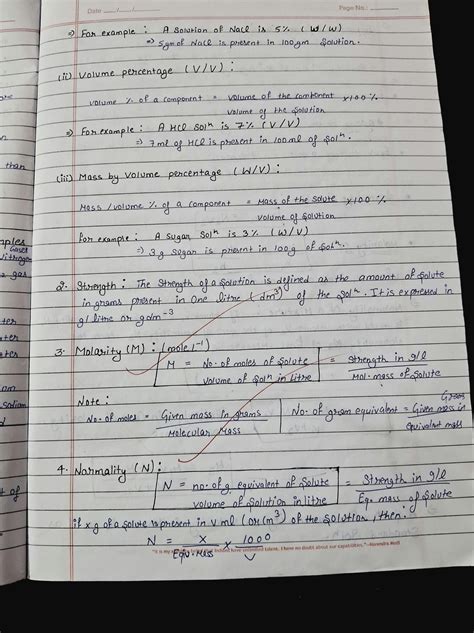 Date ___/___/___ Page No.:
⇒ For example : A Solution of NaCl is 5% (W/W)
⇒ 5gm of NaCl is present in 100gm Solution.
(ii) Volume percentage (V/V) :
volume % of a component = volume of the component / volume of the solution × 100 %
⇒ For example : A HCl Solⁿ is 7% (V/V)
⇒ 7ml of HCl is present in 100ml of Solⁿ.
(iii) Mass by Volume percentage (W/V) :
Mass / volume % of a component = Mass of the Solute / Volume of Solution × 100 %
For example : A Sugar Solⁿ is 3% (W/V)
⇒ 3g Sugar is present in 100g of Solⁿ.
2. Strength : The Strength of a Solution is defined as the amount of Solute
in grams present in One litre (dm³) of the Solⁿ. It is expressed in
g/litre or gdm⁻³
3. Molarity (M) : (mole l⁻¹)
M = No. of moles of Solute / Volume of Solⁿ in litre = Strength in g/l / Mol. mass of Solute
Note :
No. of moles = Given mass in grams / Molecular Mass
No. of gram equivalent = Given mass in Gram / Equivalent mass
4. Normality (N) :
N = no. of g equivalent of Solute / volume of Solution in litre = Strength in g/l / Eq. mass of Solute
if x g of a Solute is present in V ml (or cm³) of the Solution, then :
N = x / Equ. Mass × 1000 / V
than
Gases
Nitrogen
gas